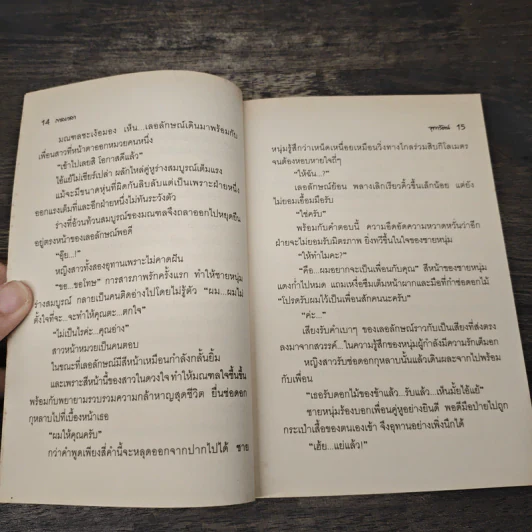 14 ภาณุมาศ
มณฑลชะเง้อมอง เห็น...เลอลักษณ์เดินมาพร้อมกับ
เพื่อนสาวที่หน้าตาออกหมวยคนหนึ่ง
"เข้าไปเลยสิ โอกาสดีแล้ว"
ไอ้แย้ไม่เชียร์เปล่า ผลักไหล่คู่หูร่างสมบูรณ์เต็มแรง
แม้จะมีขนาดหุ่นที่ผิดกันลิบลับแต่เป็นเพราะฝ่ายหนึ่ง
ออกแรงเต็มที่และอีกฝ่ายหนึ่งไม่ทันระวังตัว
ร่างที่อ้วนท้วนสมบูรณ์ของมณฑลจึงถลาออกไปหยุดยืน
อยู่ตรงหน้าของเลอลักษณ์พอดี
"อุ๊ย...!"
หญิงสาวทั้งสองอุทานเพราะไม่คาดฝัน
"ขอ...ขอโทษ" การสารภาพรักครั้งแรก ทำให้ชายหนุ่ม
ร่างสมบูรณ์ กลายเป็นคนติดอ่างไปโดยไม่รู้ตัว "ผม...ผมไม่
ตั้งใจที่จะ...จะทำให้คุณตะ...ตกใจ"
"ไม่เป็นไรค่ะ...คุณอ่าง"
สาวหน้าหมวยเป็นคนตอบ
ในขณะที่เลอลักษณ์มีสีหน้าเหมือนกำลังกลั้นยิ้ม
และเพราะสีหน้านี้ของสาวในดวงใจ ทำให้มณฑลใจชื้นขึ้น
พร้อมกับพยายามรวบรวมความกล้าหาญสุดชีวิต ยื่นช่อดอก
กุหลาบไปที่เบื้องหน้าเธอ
"ผมให้คุณครับ"
กว่าคำพูดเพียงสี่คำนี้จะหลุดออกจากปากไปได้ ชาย
15
หนุ่มรู้สึกว่าเหน็ดเหนื่อยเหมือนวิ่งทางไกลร่วมสิบกิโลเมตร
จนต้องหอบหายใจถี่ๆ
"ให้ฉัน...?"
เลอลักษณ์ย้อน พลางเลิกเรียวคิ้วขึ้นเล็กน้อย แต่ยัง
ไม่ยอมเอื้อมมือรับ
"ใช่ครับ"
พร้อมกับคำตอบนี้ ความอึดอัดความหวาดหวั่นว่าอีก
ฝ่ายจะไม่ยอมรับมิตรภาพ ยิ่งทวีขึ้นในใจของชายหนุ่ม
"ให้ทำไมคะ?"
"คือ...ผมอยากจะเป็นเพื่อนกับคุณ" สีหน้าของชายหนุ่ม
แดงก่ำไปหมด แถมเหงื่อซึมเต็มหน้าผากและมือที่กำช่อดอกไม้
"โปรดรับผมไว้เป็นเพื่อนสักคนนะครับ"
"ค่ะ..."
เสียงรับคำเบาๆ ของเลอลักษณ์ราวกับเป็นเสียงที่ส่งตรง
ลงมาจากสวรรค์...ในความรู้สึกของหนุ่มผู้กำลังมีความรักเต็มอก
หญิงสาวรับช่อดอกกุหลาบนั้นแล้วเดินผละจากไปพร้อม
กับเพื่อน
"เธอรับดอกไม้ของข้าแล้ว...รับแล้ว...เห็นมั้ยไอ้แย้"
ชายหนุ่มร้องบอกเพื่อนคู่หูอย่างยินดี พอดีมือป่ายไปถูก
กระเป๋าเสื้อของตนเองเข้า จึงอุทานอย่างเพิ่งนึกได้
"เฮ้ย...แย่แล้ว!"